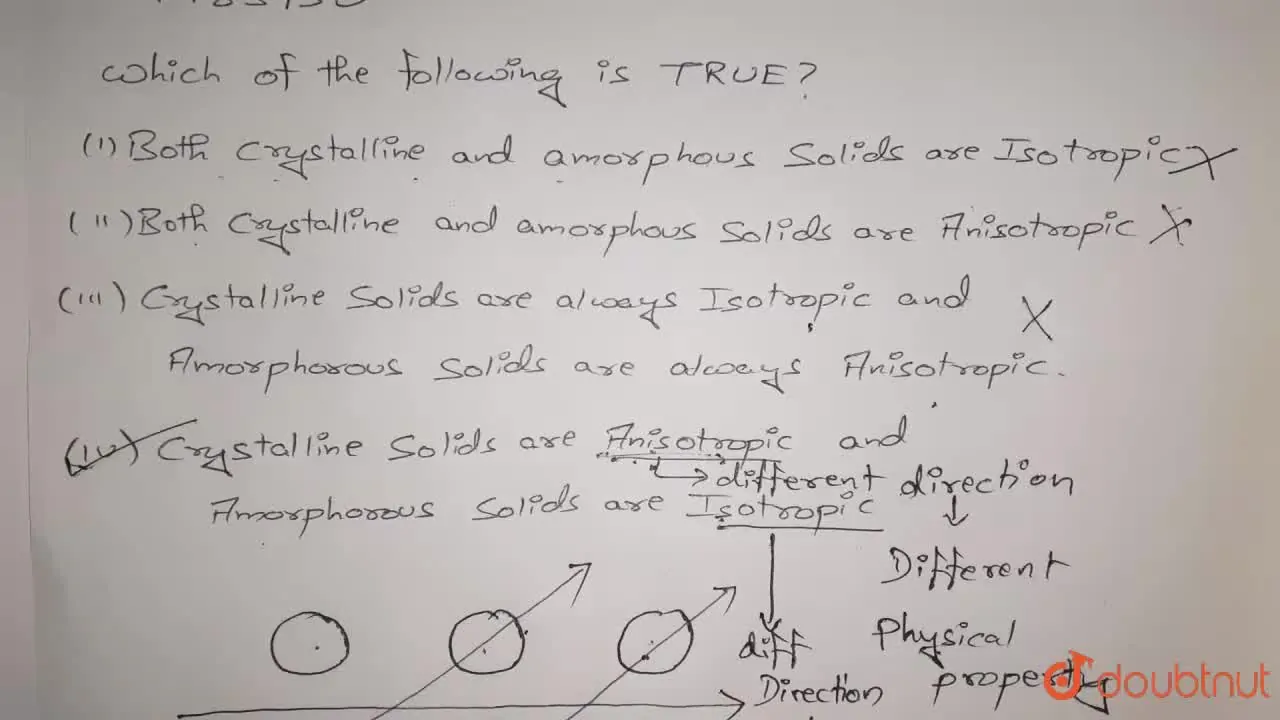 Which of the following is TRUE?
(i) Both Crystalline and amorphous Solids are Isotropic X
(ii) Both Crystalline and amorphous Solids are Anisotropic X
(iii) Crystalline Solids are always Isotropic and X
Amorphorous Solids are always Anisotropic.
(iv) Crystalline Solids are Anisotropic and
different direction
Amorphorous Solids are Isotropic
Different
diff Physical
Direction property
doubtnut